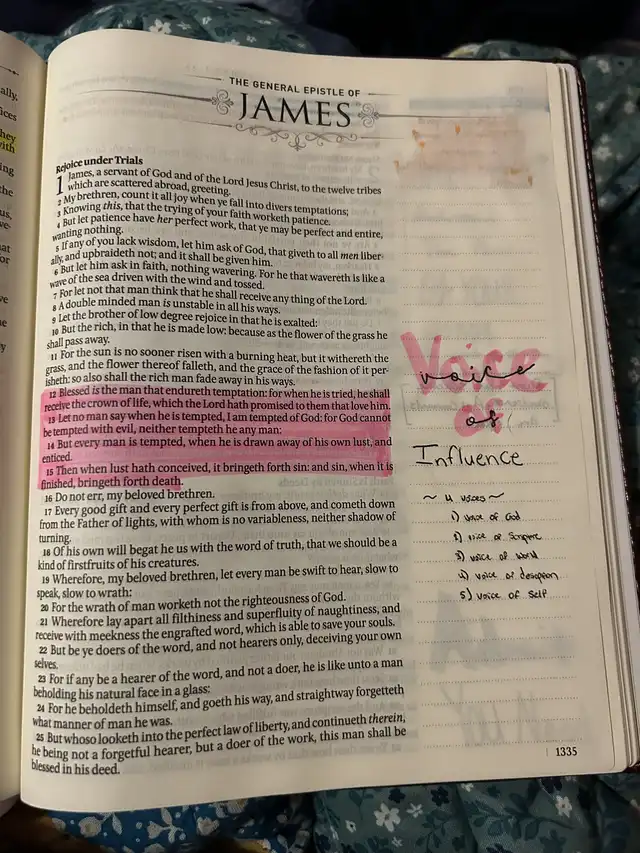 THE GENERAL EPISTLE OF
JAMES
Rejoice under Trials
1 James, a servant of God and of the Lord Jesus Christ, to the twelve tribes
which are scattered abroad, greeting.
2 My brethren, count it all joy when ye fall into divers temptations;
3 Knowing this, that the trying of your faith worketh patience.
4 But let patience have her perfect work, that ye may be perfect and entire,
wanting nothing.
5 If any of you lack wisdom, let him ask of God, that giveth to all men liber-
ally, and upbraideth not; and it shall be given him.
6 But let him ask in faith, nothing wavering. For he that wavereth is like a
wave of the sea driven with the wind and tossed.
7 For let not that man think that he shall receive any thing of the Lord.
8 A double minded man is unstable in all his ways.
9 Let the brother of low degree rejoice in that he is exalted:
10 But the rich, in that he is made low: because as the flower of the grass he
shall pass away.
11 For the sun is no sooner risen with a burning heat, but it withereth the
grass, and the flower thereof falleth, and the grace of the fashion of it per-
isheth: so also shall the rich man fade away in his ways.
12 Blessed is the man that endureth temptation: for when he is tried, he shall
receive the crown of life, which the Lord hath promised to them that love him.
13 Let no man say when he is tempted, I am tempted of God: for God cannot
be tempted with evil, neither tempteth he any man:
14 But every man is tempted, when he is drawn away of his own lust, and
enticed.
15 Then when lust hath conceived, it bringeth forth sin: and sin, when it is
finished, bringeth forth death.
16 Do not err, my beloved brethren.
17 Every good gift and every perfect gift is from above, and cometh down
from the Father of lights, with whom is no variableness, neither shadow of
turning.
18 Of his own will begat he us with the word of truth, that we should be a
kind of firstfruits of his creatures.
19 Wherefore, my beloved brethren, let every man be swift to hear, slow to
speak, slow to wrath:
20 For the wrath of man worketh not the righteousness of God.
21 Wherefore lay apart all filthiness and superfluity of naughtiness, and
receive with meekness the engrafted word, which is able to save your souls.
22 But be ye doers of the word, and not hearers only, deceiving your own
selves.
23 For if any be a hearer of the word, and not a doer, he is like unto a man
beholding his natural face in a glass:
24 For he beholdeth himself, and goeth his way, and straightway forgetteth
what manner of man he was.
25 But whoso looketh into the perfect law of liberty, and continueth therein,
he being not a forgetful hearer, but a doer of the work, this man shall be
blessed in his deed.
Voice
voice
of
of
Influence
~ 4 voices ~
1) voice of God
2) voice of Scripture
3) voice of World
4) voice of
5) voice of self
1335
ally,
ices
they
with
ing
the
us,
ve-
hat
for
ve
he
y